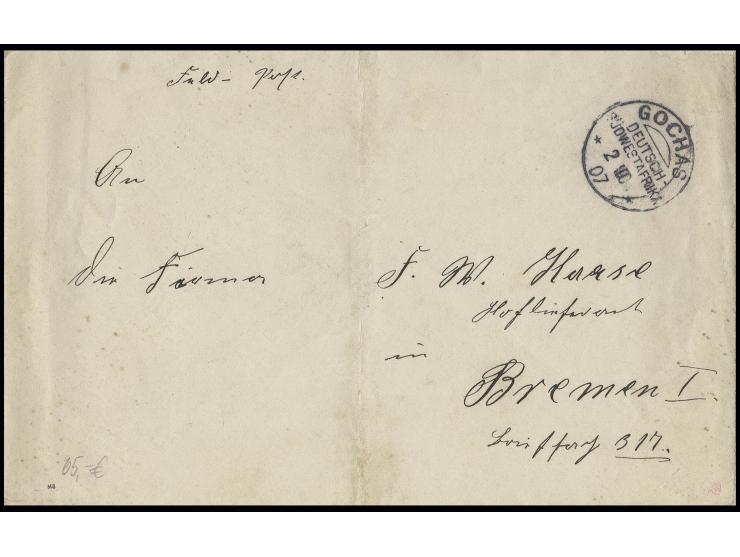 Feld- Post.
GOCHAS
DEUTSCH-
SÜDWESTAFRIKA
2
07
An
die Firma F. W. Haase
Hoflieferant
in
Bremen I.
Brieffach 317.
05,-€
MB